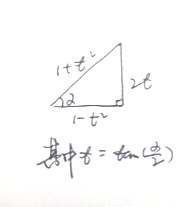 1+t²
2t
α
1-t²
其中t=tan(α/2)